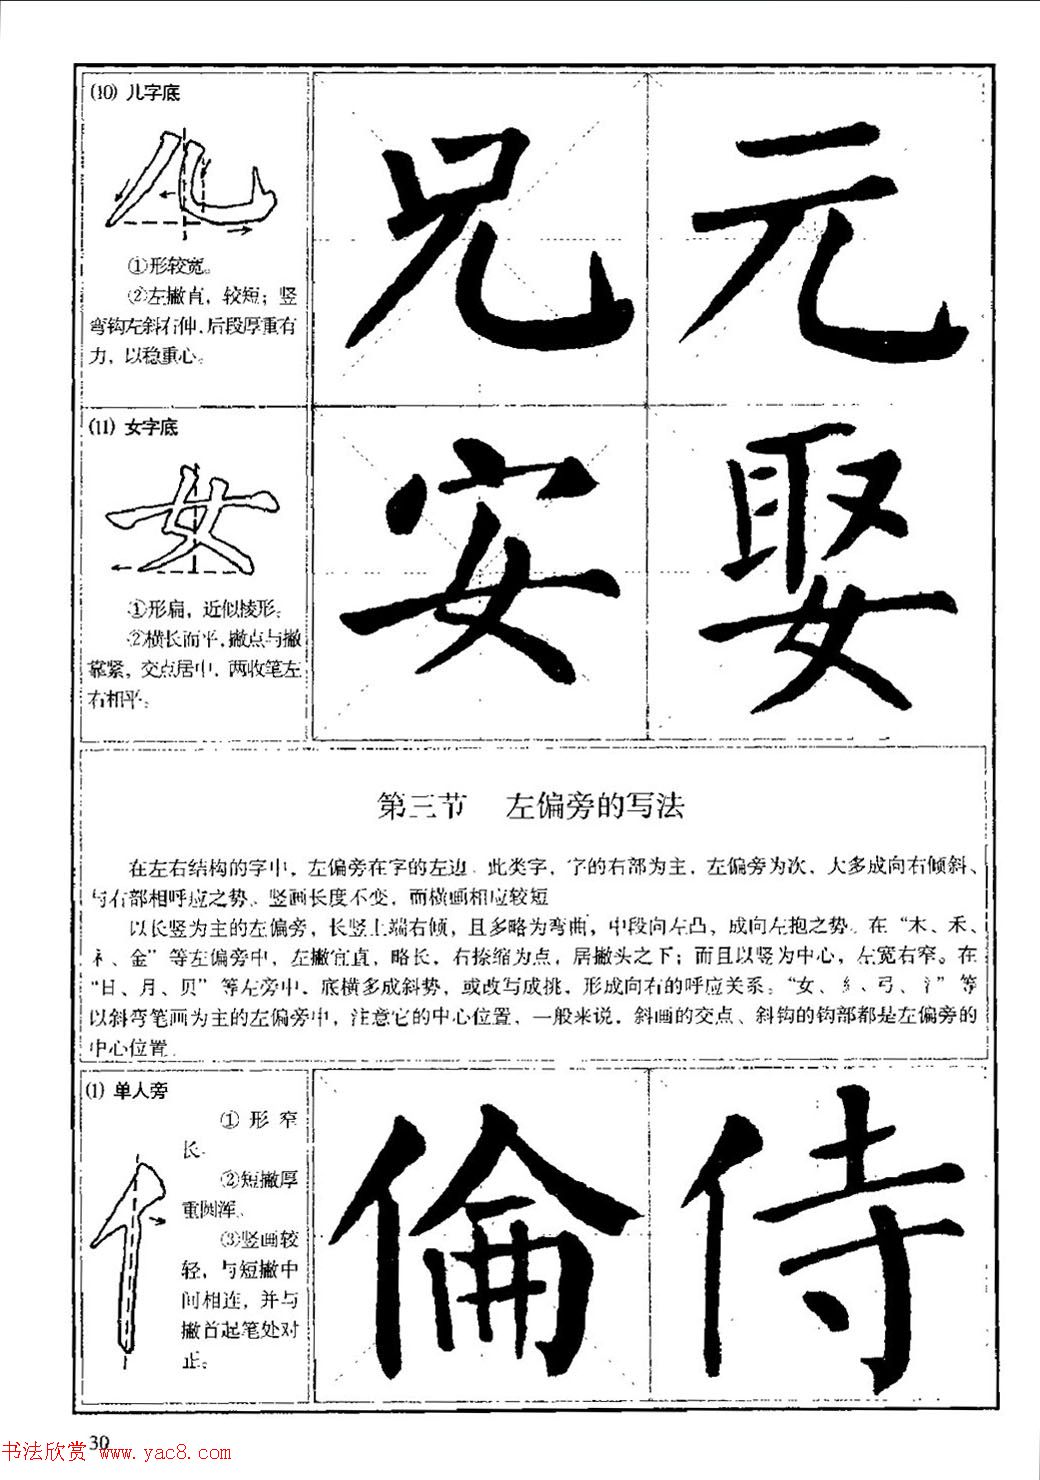 (10) 儿字底
①形较宽。
②左撇直，较短；竖
弯钩左斜右伸，后段厚重有
力，以稳重心。
兄 元
(11) 女字底
①形扁，近似棱形。
②横长而平，撇点与撇
靠紧，交点居中，两收笔左
右相平。
安 娶
第三节 左偏旁的写法
在左右结构的字中，左偏旁在字的左边。此类字，字的右部为主，左偏旁为次，大多成向右倾斜、
与右部相呼应之势。竖画长度不变，而横画相应较短
以长竖为主的左偏旁，长竖上端右倾，且多略为弯曲，中段向左凸，成向左抱之势。在“木、禾、
礻、金”等左偏旁中，左撇宜直，略长，右捺缩为点，居撇头之下；而且以竖为中心，左宽右窄。在
“日、月、贝”等左旁中，底横多成斜势，或改写成挑，形成向右的呼应关系。“女、纟、弓、犭”等
以斜弯笔画为主的左偏旁中，注意它的中心位置，一般来说，斜画的交点、斜钩的钩部都是左偏旁的
中心位置
(1) 单人旁
①形窄
长。
②短撇厚
重圆浑。
③竖画较
轻，与短撇中
间相连，并与
撇首起笔处对
正。
倫 侍
30
书法欣赏 www.yac8.com